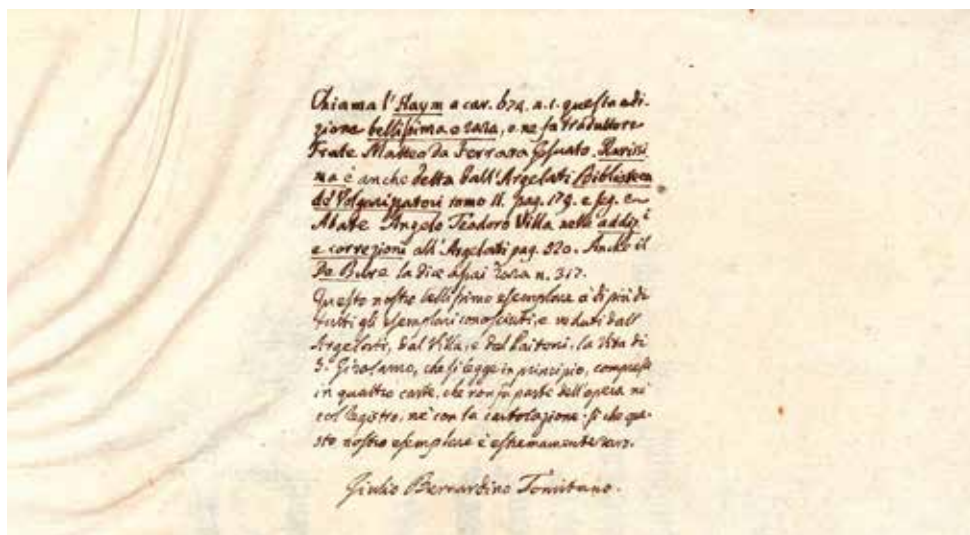 Chiama l'Haym a car. 674. n. 1. questa edi-
zione bellissima e rara, e ne fa traduttore
Frate Matteo da Ferrara Gesuato. Rarissi
ma è anche detta dall'Argelati Biblioteca
de' Volgarizzatori tomo II. pag. 179. e seg. e
Abate Angelo Teodoro Villa nelle addiz.i
e correzioni all'Argelati pag. 520. Anche il
De Bure la dice assai rara n. 317.
Questo nostro bellissimo esemplare à di più di
tutti gli esemplari conosciuti, e veduti dall'
Argelati, dal Villa, e dal Paitoni, la vita di
S. Girolamo, che si legge in principio, compresa
in quattro carte, che non fa parte dell'opera nè
col registro, nè con la cartolazione. sì che que-
sto nostro esemplare è estremamente raro.
Giulio Bernardino Tomitano.